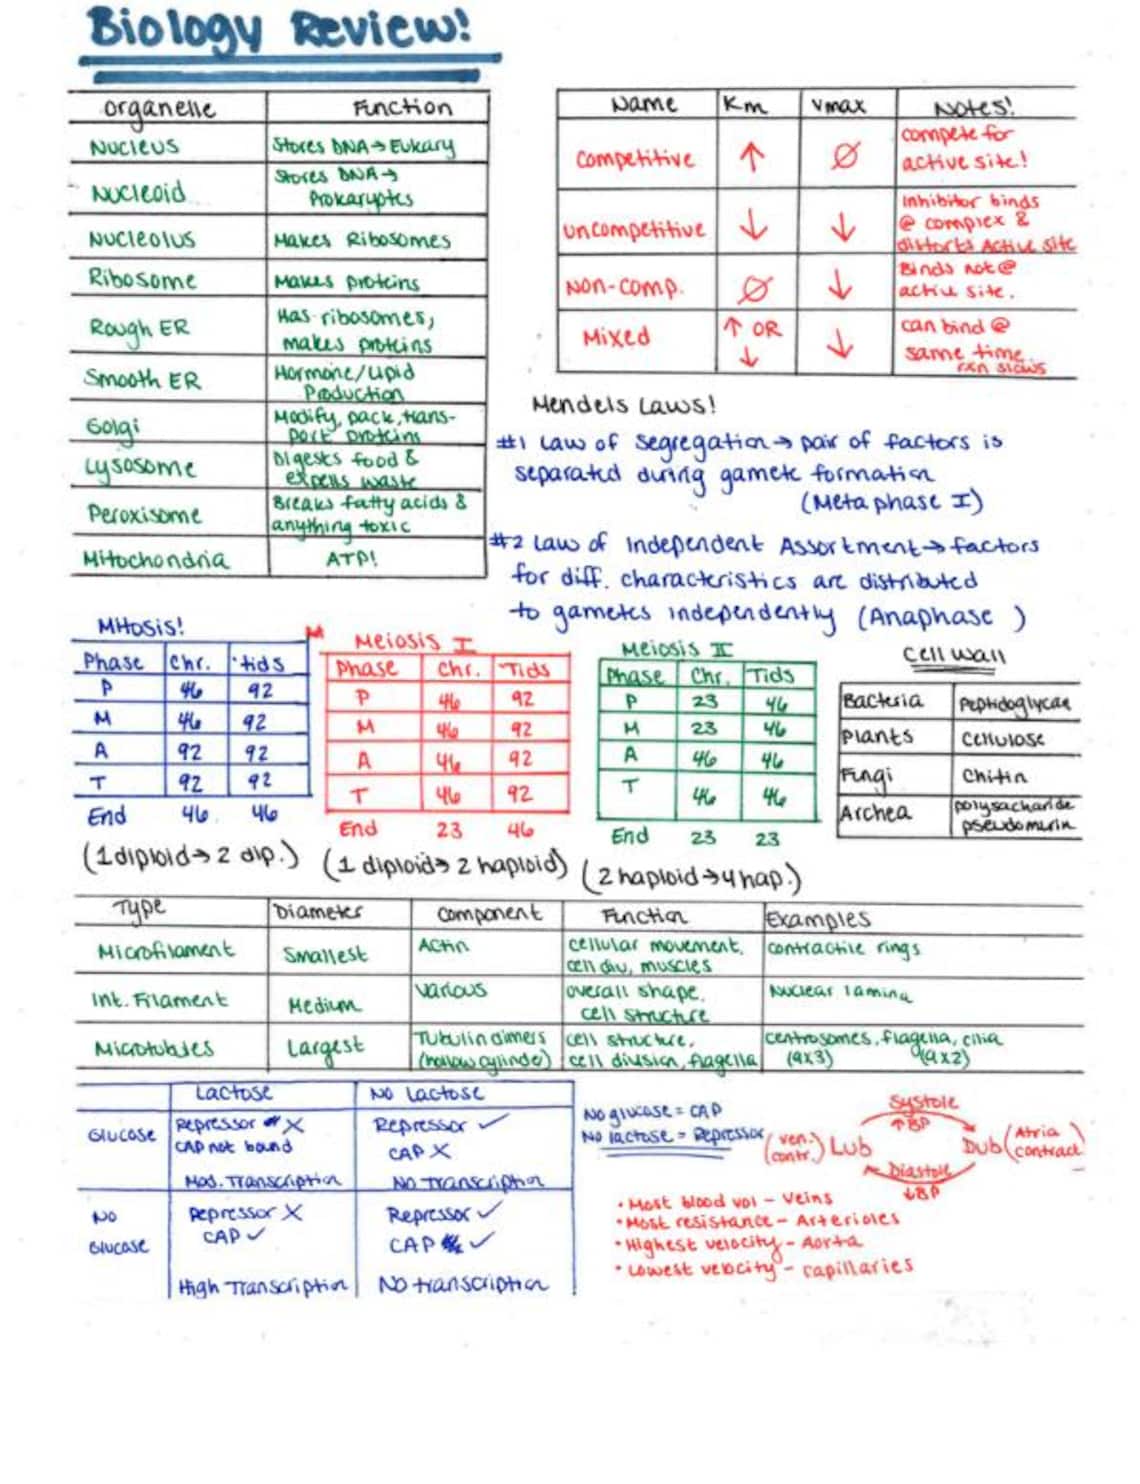 Biology Review!
Organelle Function
Nucleus Stores DNA → Eukary
Nucleoid Stores DNA →
Prokaryotes
Nucleolus Makes Ribosomes
Ribosome Makes proteins
Rough ER Has ribosomes,
makes proteins
Smooth ER Hormone/Lipid
Production
Golgi Modify, pack, trans-
port proteins
Lysosome Digests food &
expells waste
Peroxisome Breaks fatty acids &
anything toxic
Mitochondria ATP!
Name Km Vmax Notes!
Competitive ↑ ∅ compete for
active site!
Uncompetitive ↓ ↓ Inhibitor binds
@ complex &
distorts Active site
Non-comp. ∅ ↓ Binds not @
active site.
Mixed ↑ OR ↓ ↓ can bind @
same time
rxn slows
Mendels Laws!
#1 Law of Segregation → pair of factors is
separated during gamete formation
(Metaphase I)
#2 Law of Independent Assortment → factors
for diff. characteristics are distributed
to gametes independently (Anaphase )
Mitosis!
Phase Chr. 'tids
P 46 92
M 46 92
A 92 92
T 92 92
End 46 46
(1 diploid → 2 dip.)
Meiosis I
Phase Chr. Tids
P 46 92
M 46 92
A 46 92
T 46 92
End 23 46
(1 diploid → 2 haploid)
Meiosis II
Phase Chr. Tids
P 23 46
M 23 46
A 46 46
T 46 46
End 23 23
(2 haploid → 4 hap.)
Cell Wall
Bacteria Peptidoglycan
Plants Cellulose
Fungi Chitin
Archea polysacharide
pseudomurin
Type Diameter Component Function Examples
Microfilament Smallest Actin cellular movement, contractile rings
cell div, muscles
Int. Filament Medium Various overall shape, Nuclear lamina
cell structure
Microtubles Largest Tubulin dimers cell structure, centrosomes, flagella, cilia
(hollow cylinder) cell division, flagella (9x3) (9x2)
Lactose No Lactose
Glucose Repressor X Repressor ✓
CAP not bound CAP X
Mod. Transcription No transcription
No Glucose Repressor X Repressor ✓
CAP ✓ CAP ✓
High Transcription No transcription
No glucose = CAP
No lactose = Repressor
Systole
↑BP
(ven. contr.) Lub Dub (Atria contract)
Diastole
↓BP
• Most blood vol - Veins
• Most resistance - Arterioles
• Highest velocity - Aorta
• Lowest velocity - capillaries